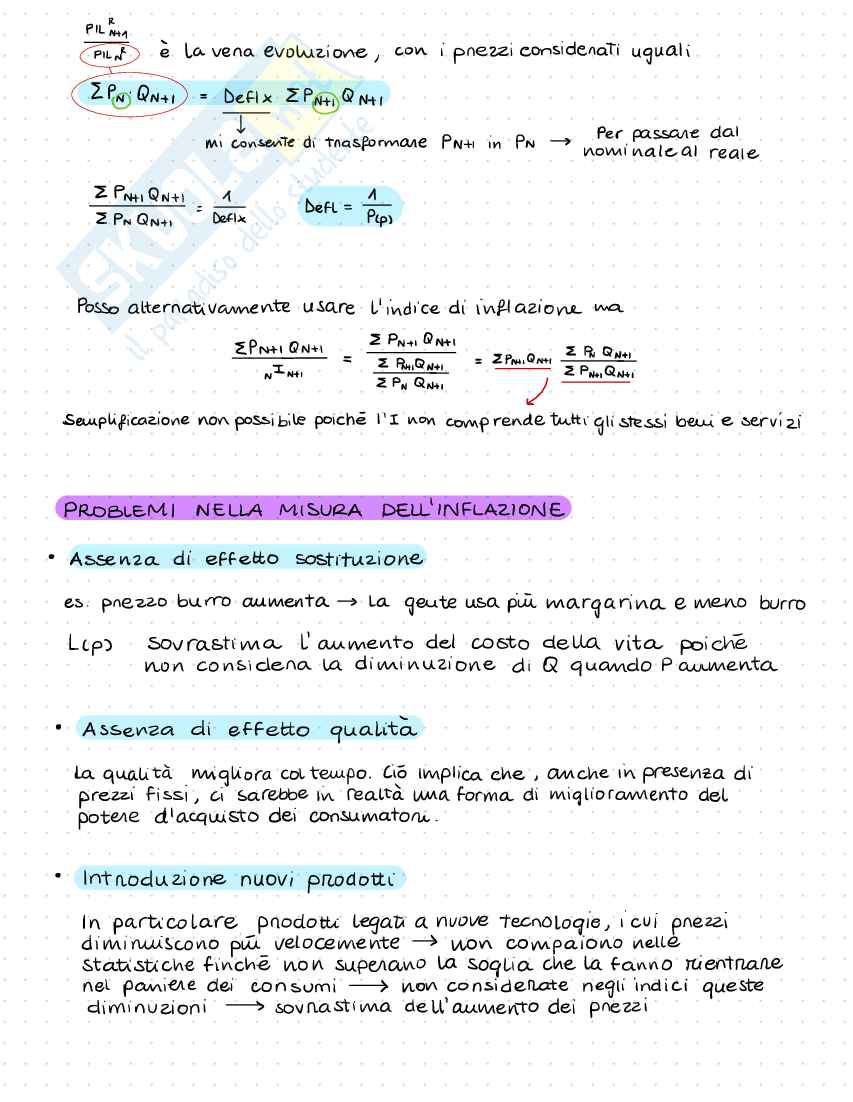 PIL^R_N+1 / PIL^R_N è la vera evoluzione, con i prezzi considerati uguali
Σ P_N · Q_N+1 = Deflx Σ P_N+1 Q_N+1
mi consente di trasformare P_N+1 in P_N → Per passare dal
nominale al reale
Σ P_N+1 Q_N+1 / Σ P_N Q_N+1 = 1 / Deflx Defl = 1 / P(p)
Posso alternativamente usare l'indice di inflazione ma
Σ P_N+1 Q_N+1 / _N I_N+1 = Σ P_N+1 Q_N+1 / (Σ P_N+1 Q_N+1 / Σ P_N Q_N+1) = Σ P_N+1 Q_N+1 Σ P_N Q_N+1 / Σ P_N+1 Q_N+1
Semplificazione non possibile poichē l'I non comprende tutti gli stessi beni e servizi
PROBLEMI NELLA MISURA DELL'INFLAZIONE
• Assenza di effetto sostituzione
es. prezzo burro aumenta → la gente usa più margarina e meno burro
L(p) sovrastima l'aumento del costo della vita poichē
non considera la diminuzione di Q quando P aumenta
• Assenza di effetto qualità
La qualità migliora col tempo. Ciō implica che, anche in presenza di
prezzi fissi, ci sarebbe in realtà una forma di miglioramento del
potere d'acquisto dei consumatori.
• Introduzione nuovi prodotti
In particolare prodotti legati a nuove tecnologie, i cui prezzi
diminuiscono più velocemente → non compaiono nelle
statistiche finchē non superano la soglia che la fanno rientrare
nel paniere dei consumi → non considerate negli indici queste
diminuzioni → sovrastima dell'aumento dei prezzi
SKUOLA.net
il paradiso dello studente